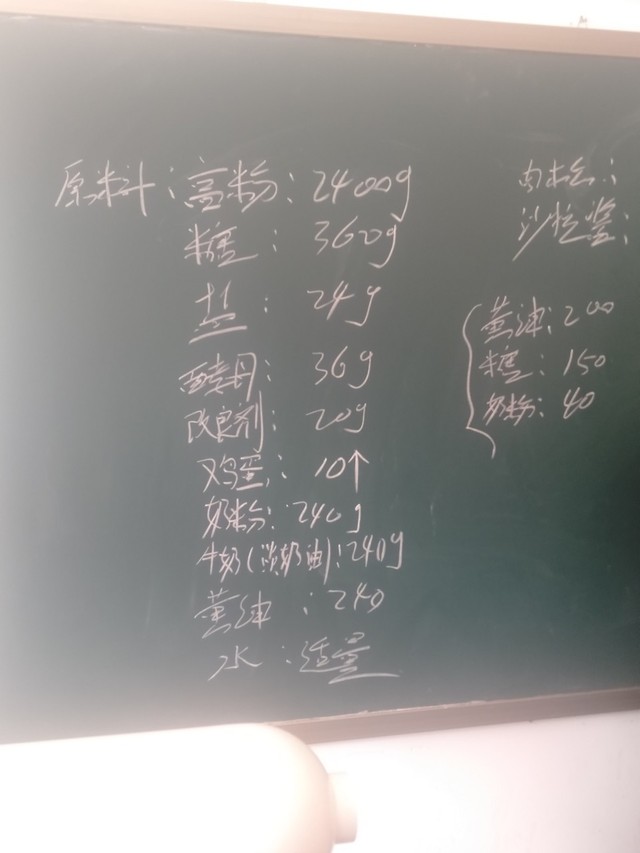 原料：高粉：2400g
糖：360g
盐：24g
酵母：36g
改良剂：20g
鸡蛋：10个
奶粉：240g
牛奶(淡奶油)：240g
黄油：240
水：适量
肉松：
沙拉酱：
黄油：200
糖：150
奶粉：40